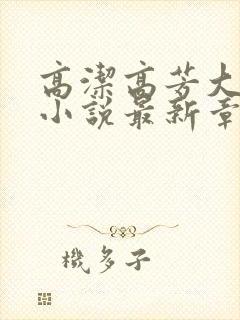 高潔高芳大
小説最新章
機多子